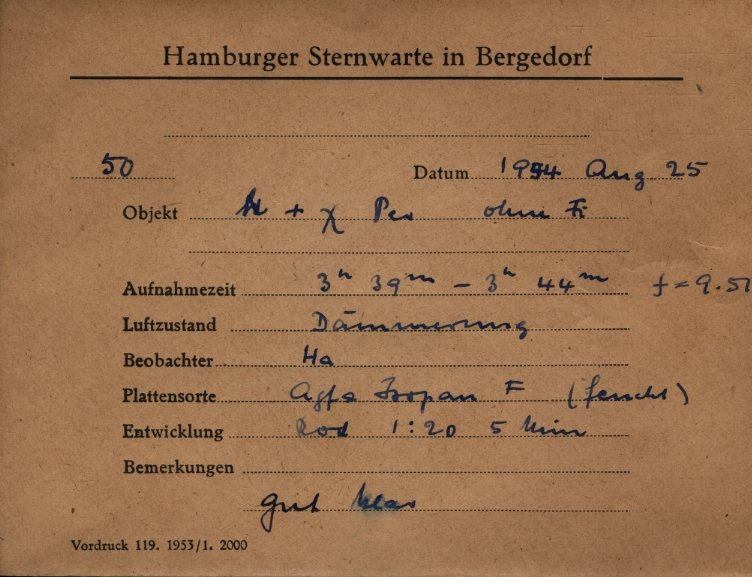 Hamburger Sternwarte in Bergedorf
50 Datum 1954 Aug 25
Objekt h + χ Per ohne Fi
Aufnahmezeit 3h 39m – 3h 44m f = 9.51
Luftzustand Dämmerung
Beobachter Ha
Plattensorte Agfa Isopan F (feucht)
Entwicklung Rod 1:20 5 Min
Bemerkungen
gut klar
Vordruck 119. 1953/1. 2000